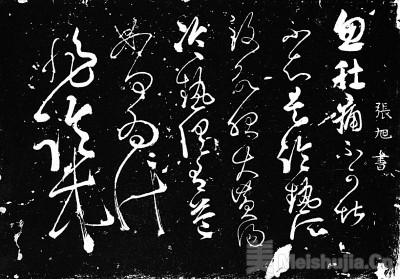 張旭書
忽肚痛不可堪
不知是冷熱所
致欲服大黃湯
冷熱俱有益
如何為計
非臨床
美 Meishujia.Cn